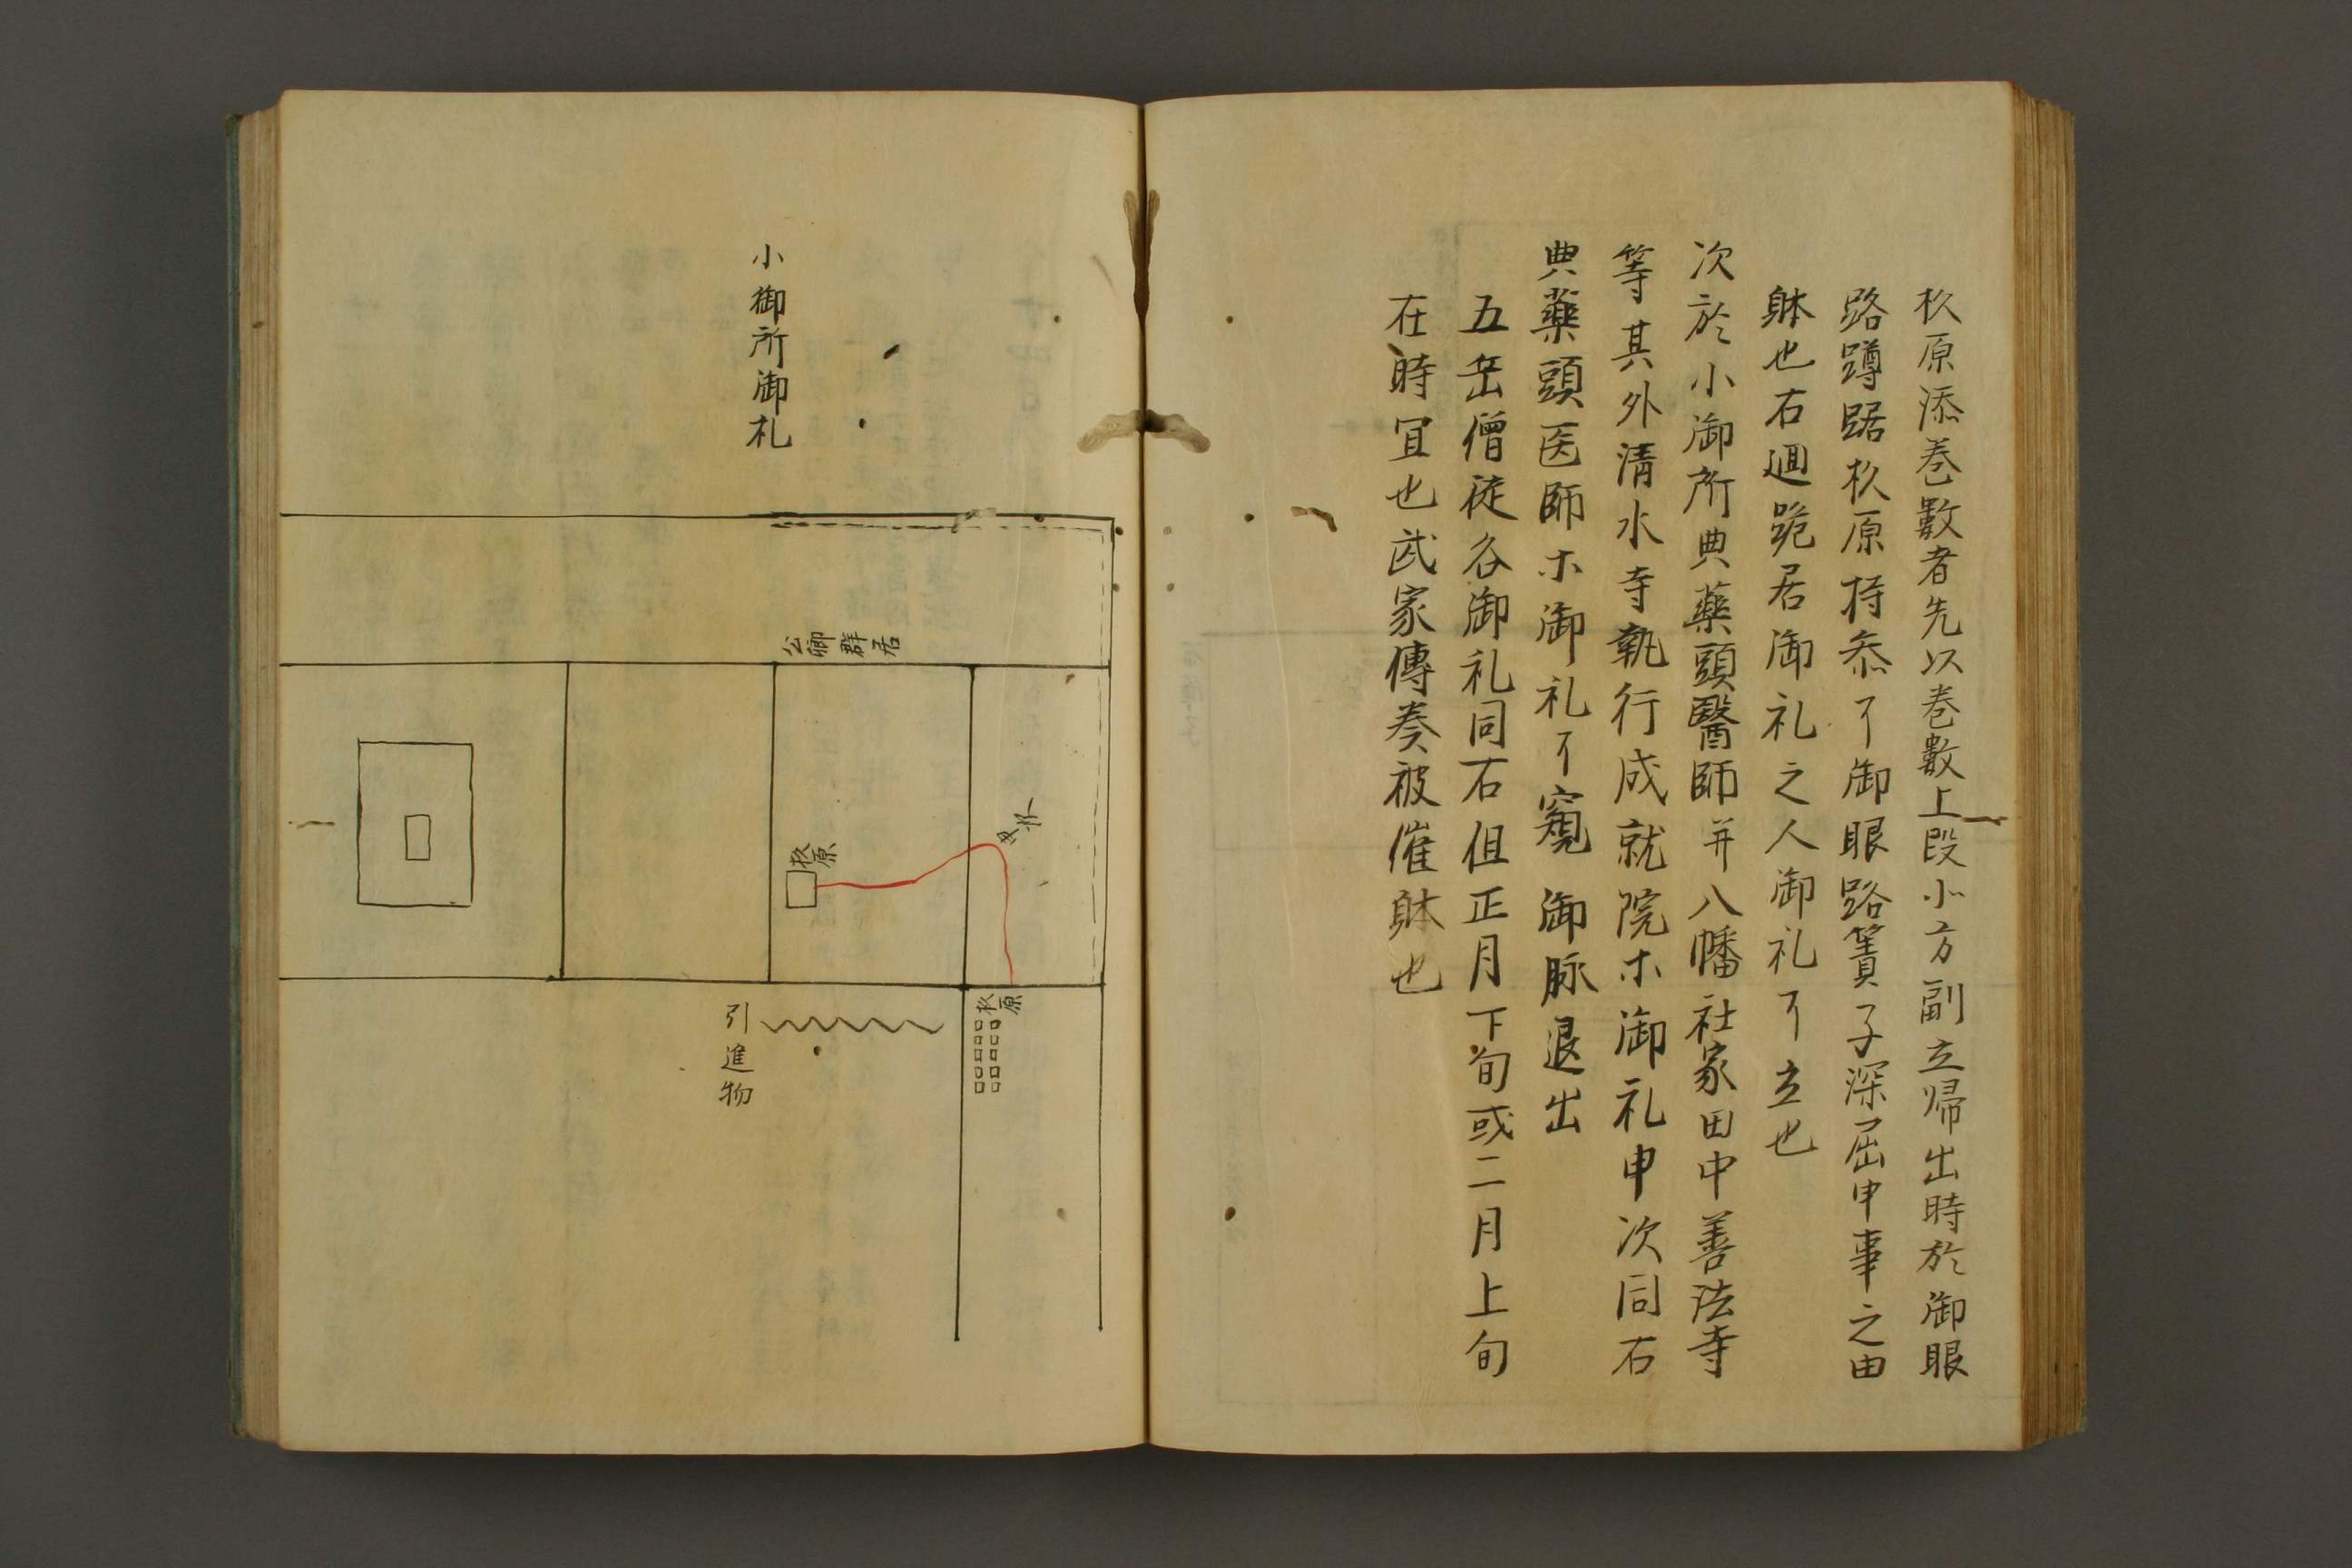 杦原添巻數者先以巻數上段小方副立帰出時於御眼
路蹲踞杦原持参了御眼路簀子深屈申事之由
躰也右廻跪居御礼之人御礼了立也
次於小御所典藥頭醫師并八幡社家田中善法寺
等其外清水寺執行成就院ホ御礼申次同右
典藥頭医師ホ御礼了窺御脉退出
五岳僧徒各御礼同右但正月下旬或二月上旬
在時宜也武家傳奏被催躰也
小御所御礼
公卿群居
杦原
杦原
引進物